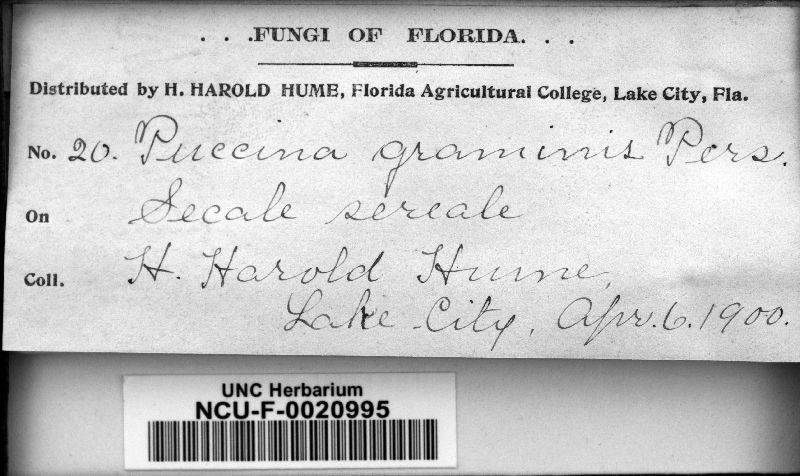 . . .FUNGI OF FLORIDA. . .
Distributed by H. HAROLD HUME, Florida Agricultural College, Lake City, Fla.
No. 20. Puccina graminis Pers.
On Secale sereale
Coll. H. Harold Hume,
Lake City, Apr. 6. 1900.
UNC Herbarium
NCU-F-0020995